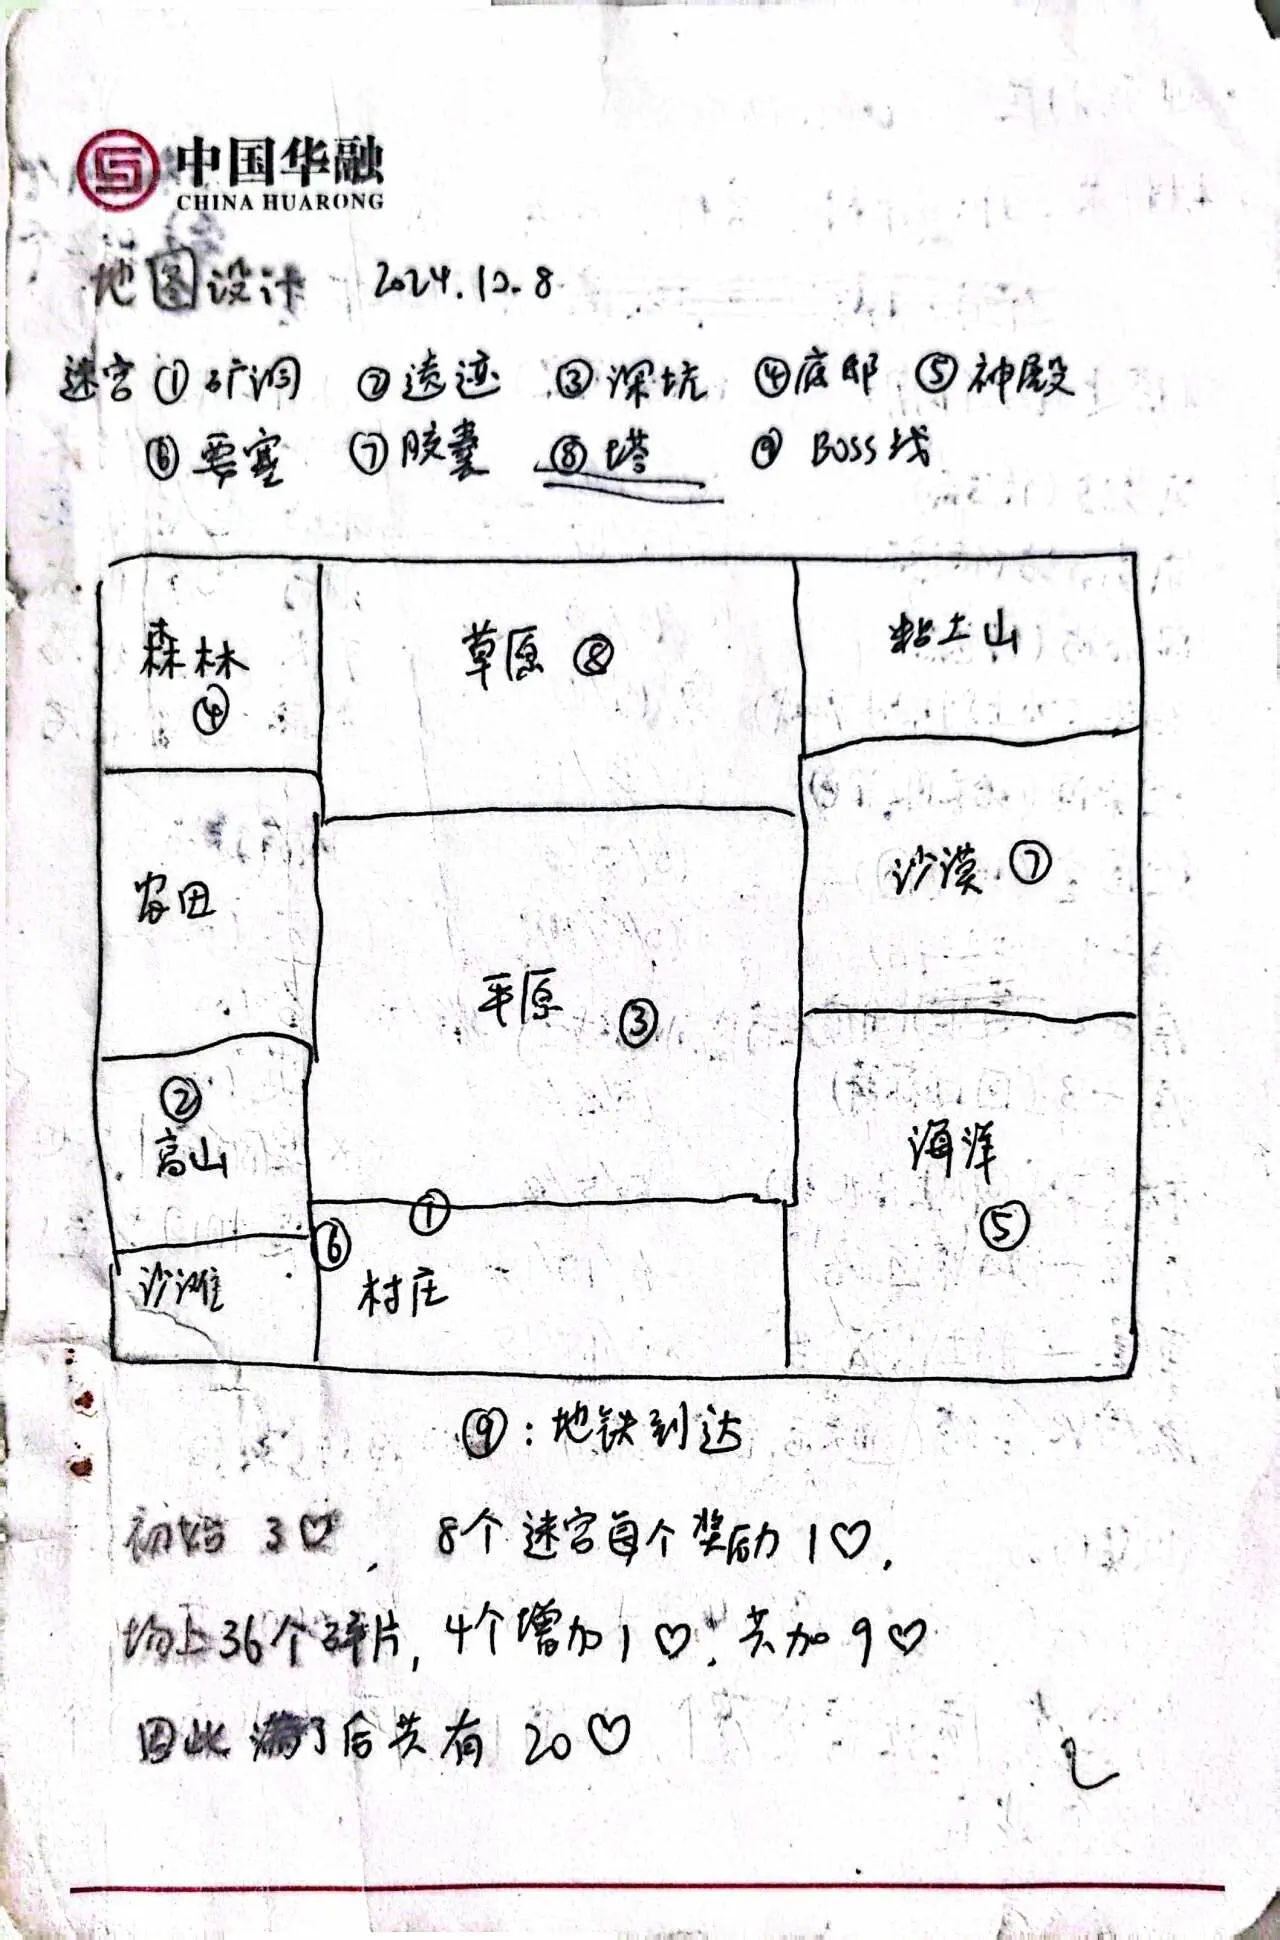 中国华融
CHINA HUARONG
地图设计 2024.12.8
迷宫 ①矿洞 ②遗迹 ③深坑 ④底邸 ⑤神殿
⑥要塞 ⑦胶囊 ⑧塔 ⑨ BOSS线
森林 ④
草原 ⑧
粘土山
农田
沙漠 ⑦
平原 ③
② 高山
海洋 ⑤
①
⑥
沙滩
村庄
⑨：地铁到达
初始 3♡， 8个迷宫每个奖励1♡，
场上36个碎片，4个增加1♡，共加9♡
因此满了后共有 20♡